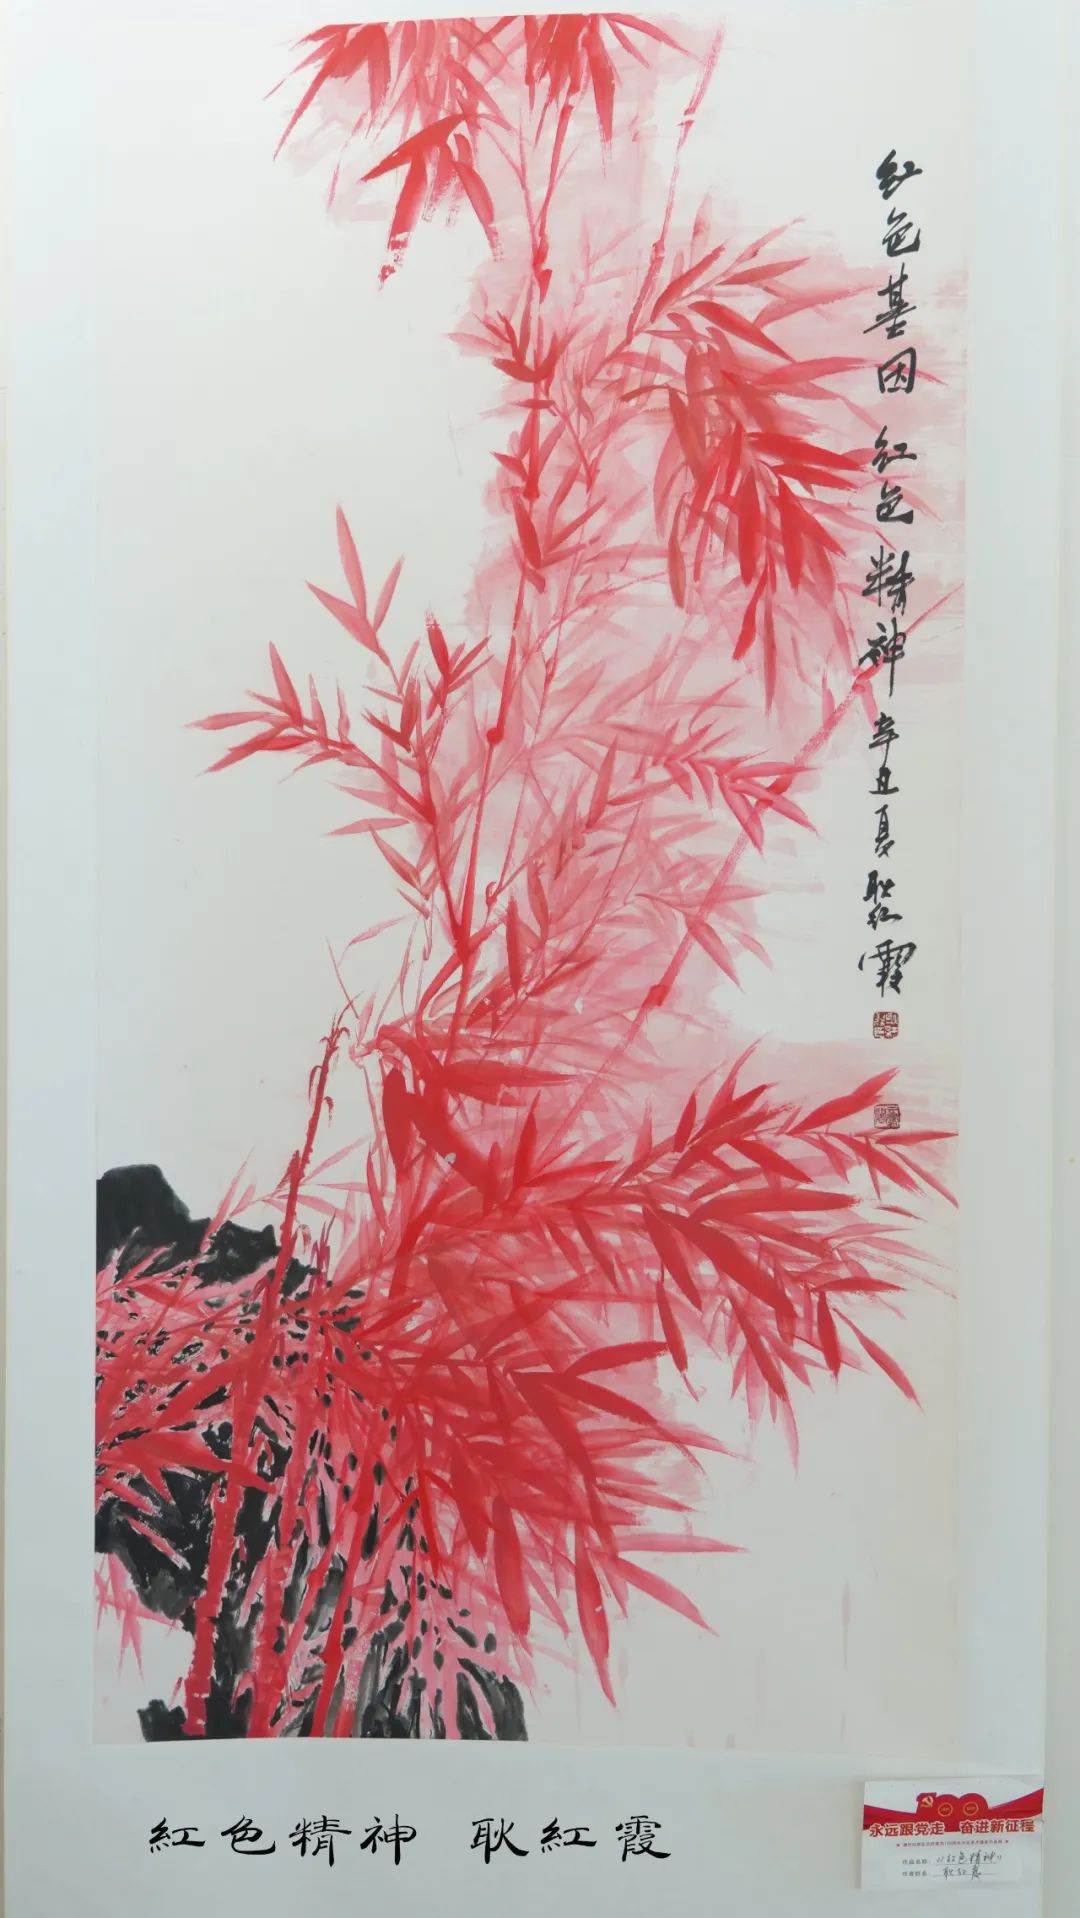 红色基因 红色精神 辛丑夏 耿红霞
紅色精神 耿紅霞
永远跟党走 奋进新征程
作品名称：《红色精神》
作者姓名：耿红霞